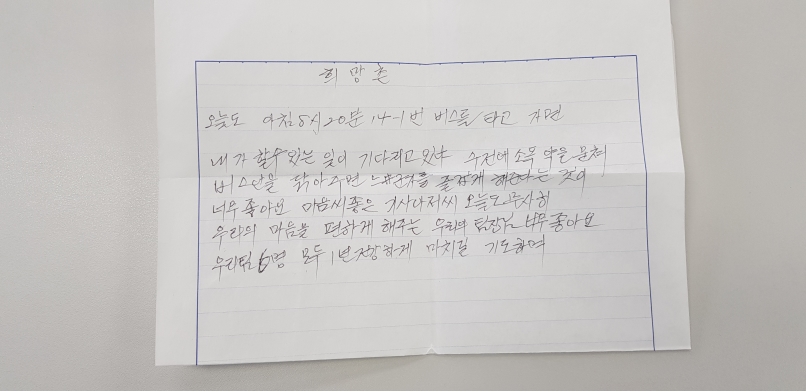 희망촌
오늘도 아침 8시 20분 14-1번 버스를 타고 가면
내가 할수있는 일이 기다리고 있다 수건에 소독 약을 묻혀
버스안을 닦아주면 즐겁게 한다는 것이
너무 좋아요 마음씨좋은 기사나저씨 오늘도 무사히
우리의 마음을 편하게 해주는 우리의 팀장님 너무 좋아요
우리팀 6명 모두 1년 건강하게 마치길 기도하며